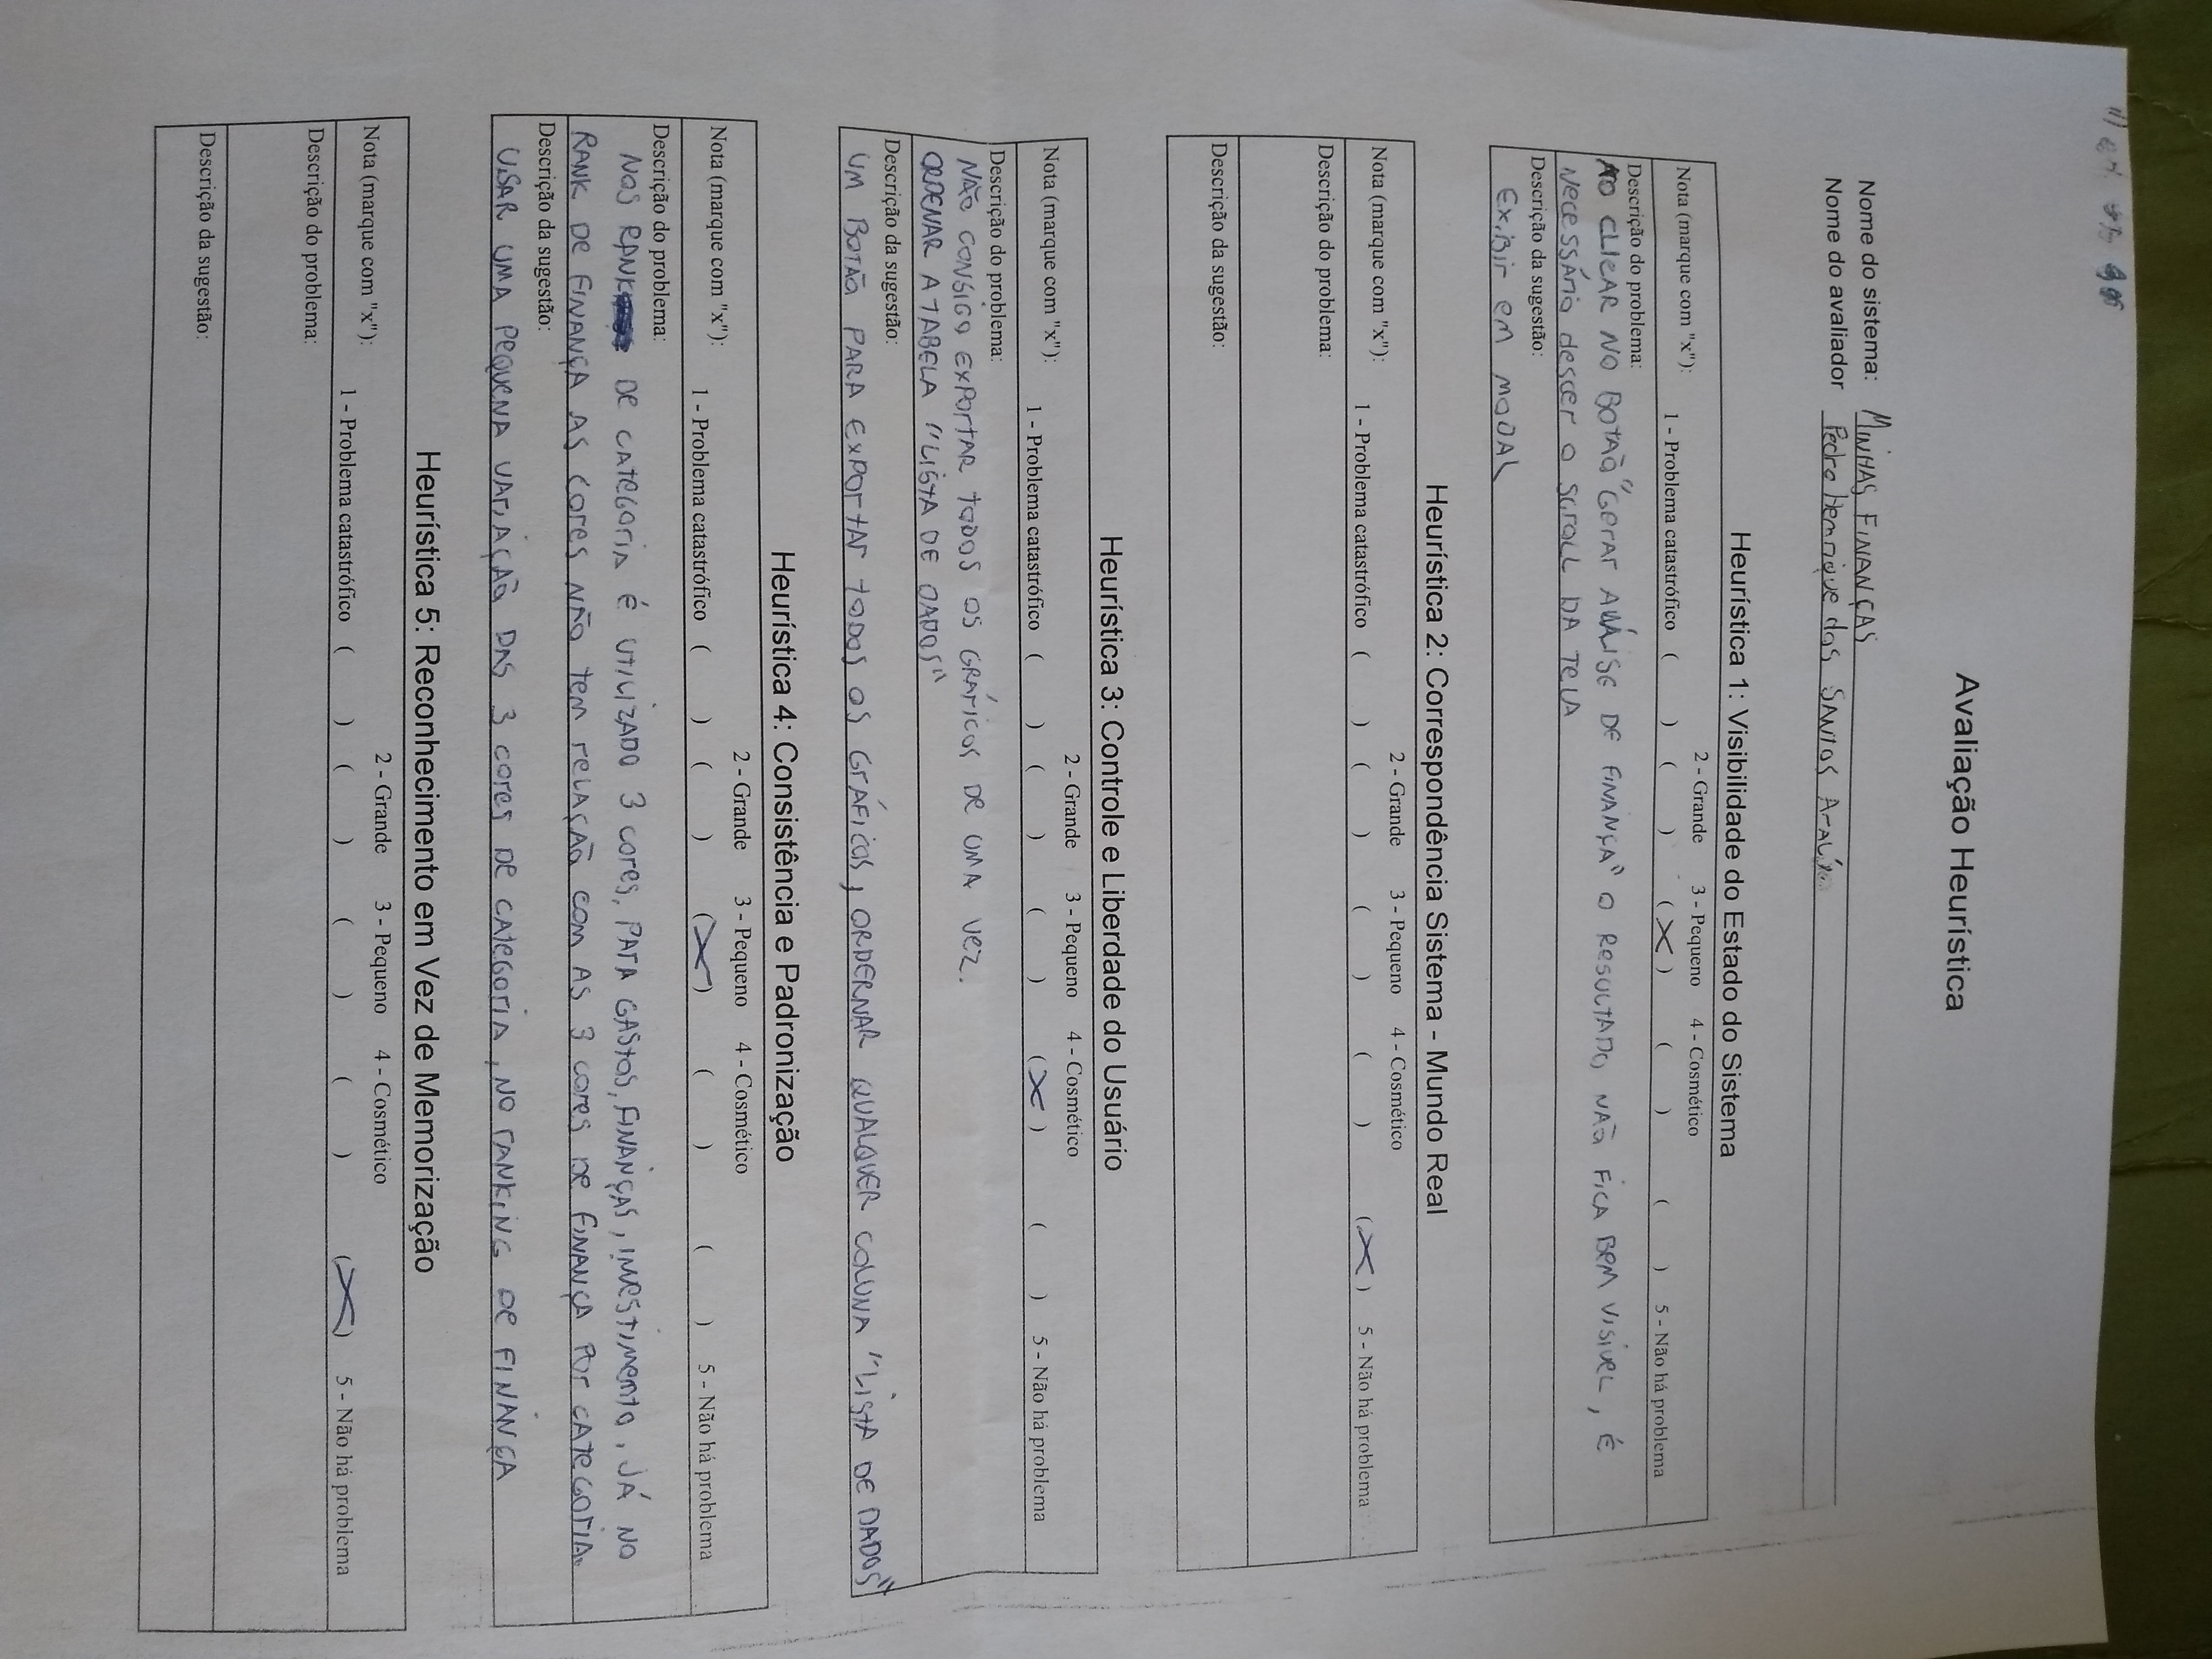 Avaliação Heurística
Nome do sistema: MINHAS FINANÇAS
Nome do avaliador Pedro Henrique dos Santos Araújo
Heurística 1: Visibilidade do Estado do Sistema
Nota (marque com "x"): 1 - Problema catastrófico ( ) 2 - Grande ( ) 3 - Pequeno (X) 4 - Cosmético ( ) 5 - Não há problema ( )
Descrição do problema:
AO CLICAR NO BOTÃO "GERAR ANÁLISE DE FINANÇA" O RESULTADO NÃO FICA BEM VISIVEL, É
NECESSÁRIO DESCER O SCROLL DA TELA
Descrição da sugestão:
EXIBIR EM MODAL
Heurística 2: Correspondência Sistema - Mundo Real
Nota (marque com "x"): 1 - Problema catastrófico ( ) 2 - Grande ( ) 3 - Pequeno ( ) 4 - Cosmético ( ) 5 - Não há problema (X)
Descrição do problema:
Descrição da sugestão:
Heurística 3: Controle e Liberdade do Usuário
Nota (marque com "x"): 1 - Problema catastrófico ( ) 2 - Grande ( ) 3 - Pequeno ( ) 4 - Cosmético (X) 5 - Não há problema ( )
Descrição do problema:
NÃO CONSIGO EXPORTAR TODOS OS GRÁFICOS DE UMA VEZ.
ORDENAR A TABELA "LISTA DE DADOS"
Descrição da sugestão:
UM BOTÃO PARA EXPORTAR TODOS OS GRÁFICOS, ORDERNAR QUALQUER COLUNA "LISTA DE DADOS"
Heurística 4: Consistência e Padronização
Nota (marque com "x"): 1 - Problema catastrófico ( ) 2 - Grande ( ) 3 - Pequeno (X) 4 - Cosmético ( ) 5 - Não há problema ( )
Descrição do problema:
NOS RANK DE CATEGORIA É UTILIZADO 3 CORES, PARA GASTOS, FINANÇAS, INVESTIMENTO, JÁ NO
RANK DE FINANÇA AS CORES NÃO TEM RELAÇÃO COM AS 3 CORES DE FINANÇA POR CATEGORIA.
Descrição da sugestão:
USAR UMA PEQUENA VARIAÇÃO DAS 3 CORES DE CATEGORIA, NO RANKING DE FINANÇA
Heurística 5: Reconhecimento em Vez de Memorização
Nota (marque com "x"): 1 - Problema catastrófico ( ) 2 - Grande ( ) 3 - Pequeno ( ) 4 - Cosmético ( ) 5 - Não há problema (X)
Descrição do problema:
Descrição da sugestão: